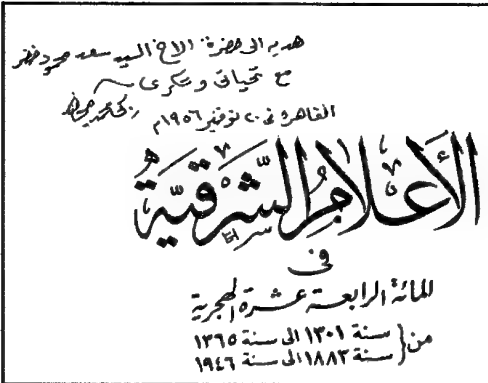 هدية الى حضرة الاخ السيد سعد محمود خضر
مع تحياتى وشكرى
القاهرة فى ٢٠ نوفمبر ١٩٥٦م
الأعلام الشرقية
فى
المائة الرابعة عشرة الهجرية
من سنة ١٣٠١ الى سنة ١٣٦٥
سنة ١٨٨٣ الى سنة ١٩٤٦